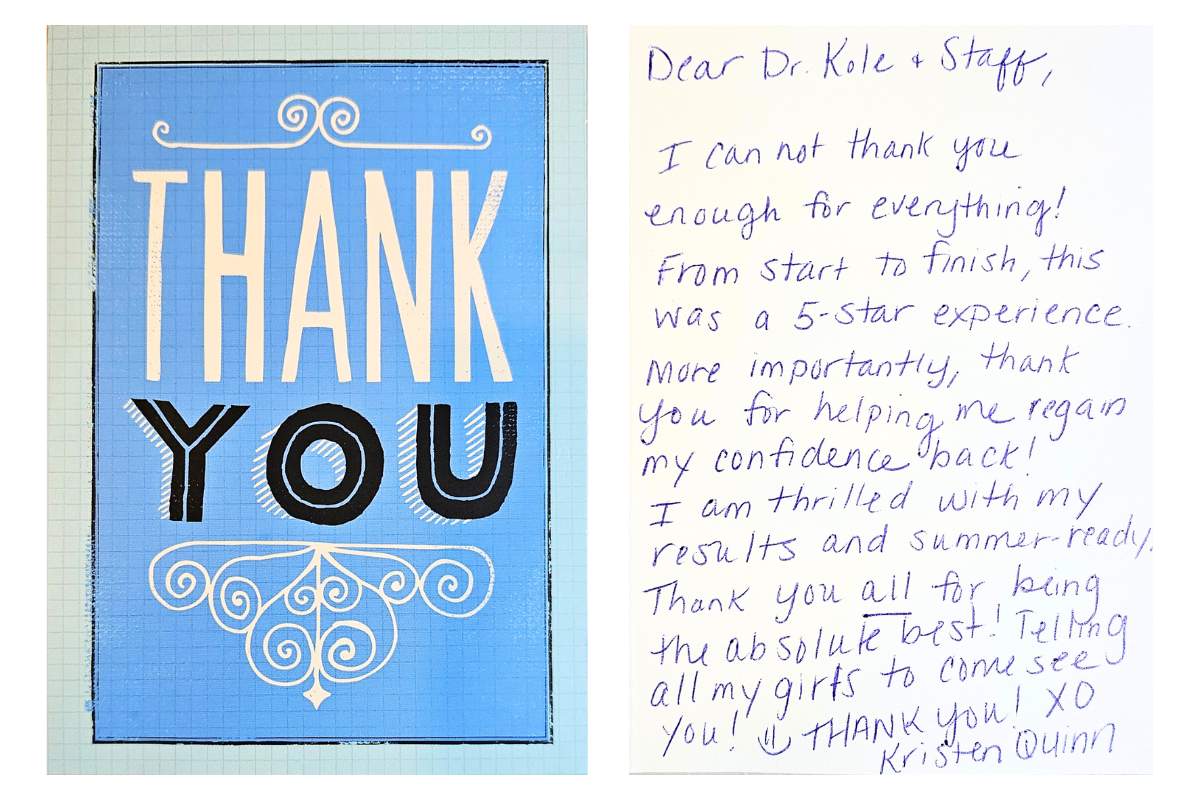 THANK
YOU
Dear Dr. Kole + Staff,
I can not thank you
enough for everything!
From start to finish, this
was a 5-star experience.
More importantly, thank
you for helping me regain
my confidence back!
I am thrilled with my
results and summer-ready.
Thank you all for being
the absolute best! Telling
all my girls to come see
you! THANK YOU! XO
Kristen Quinn